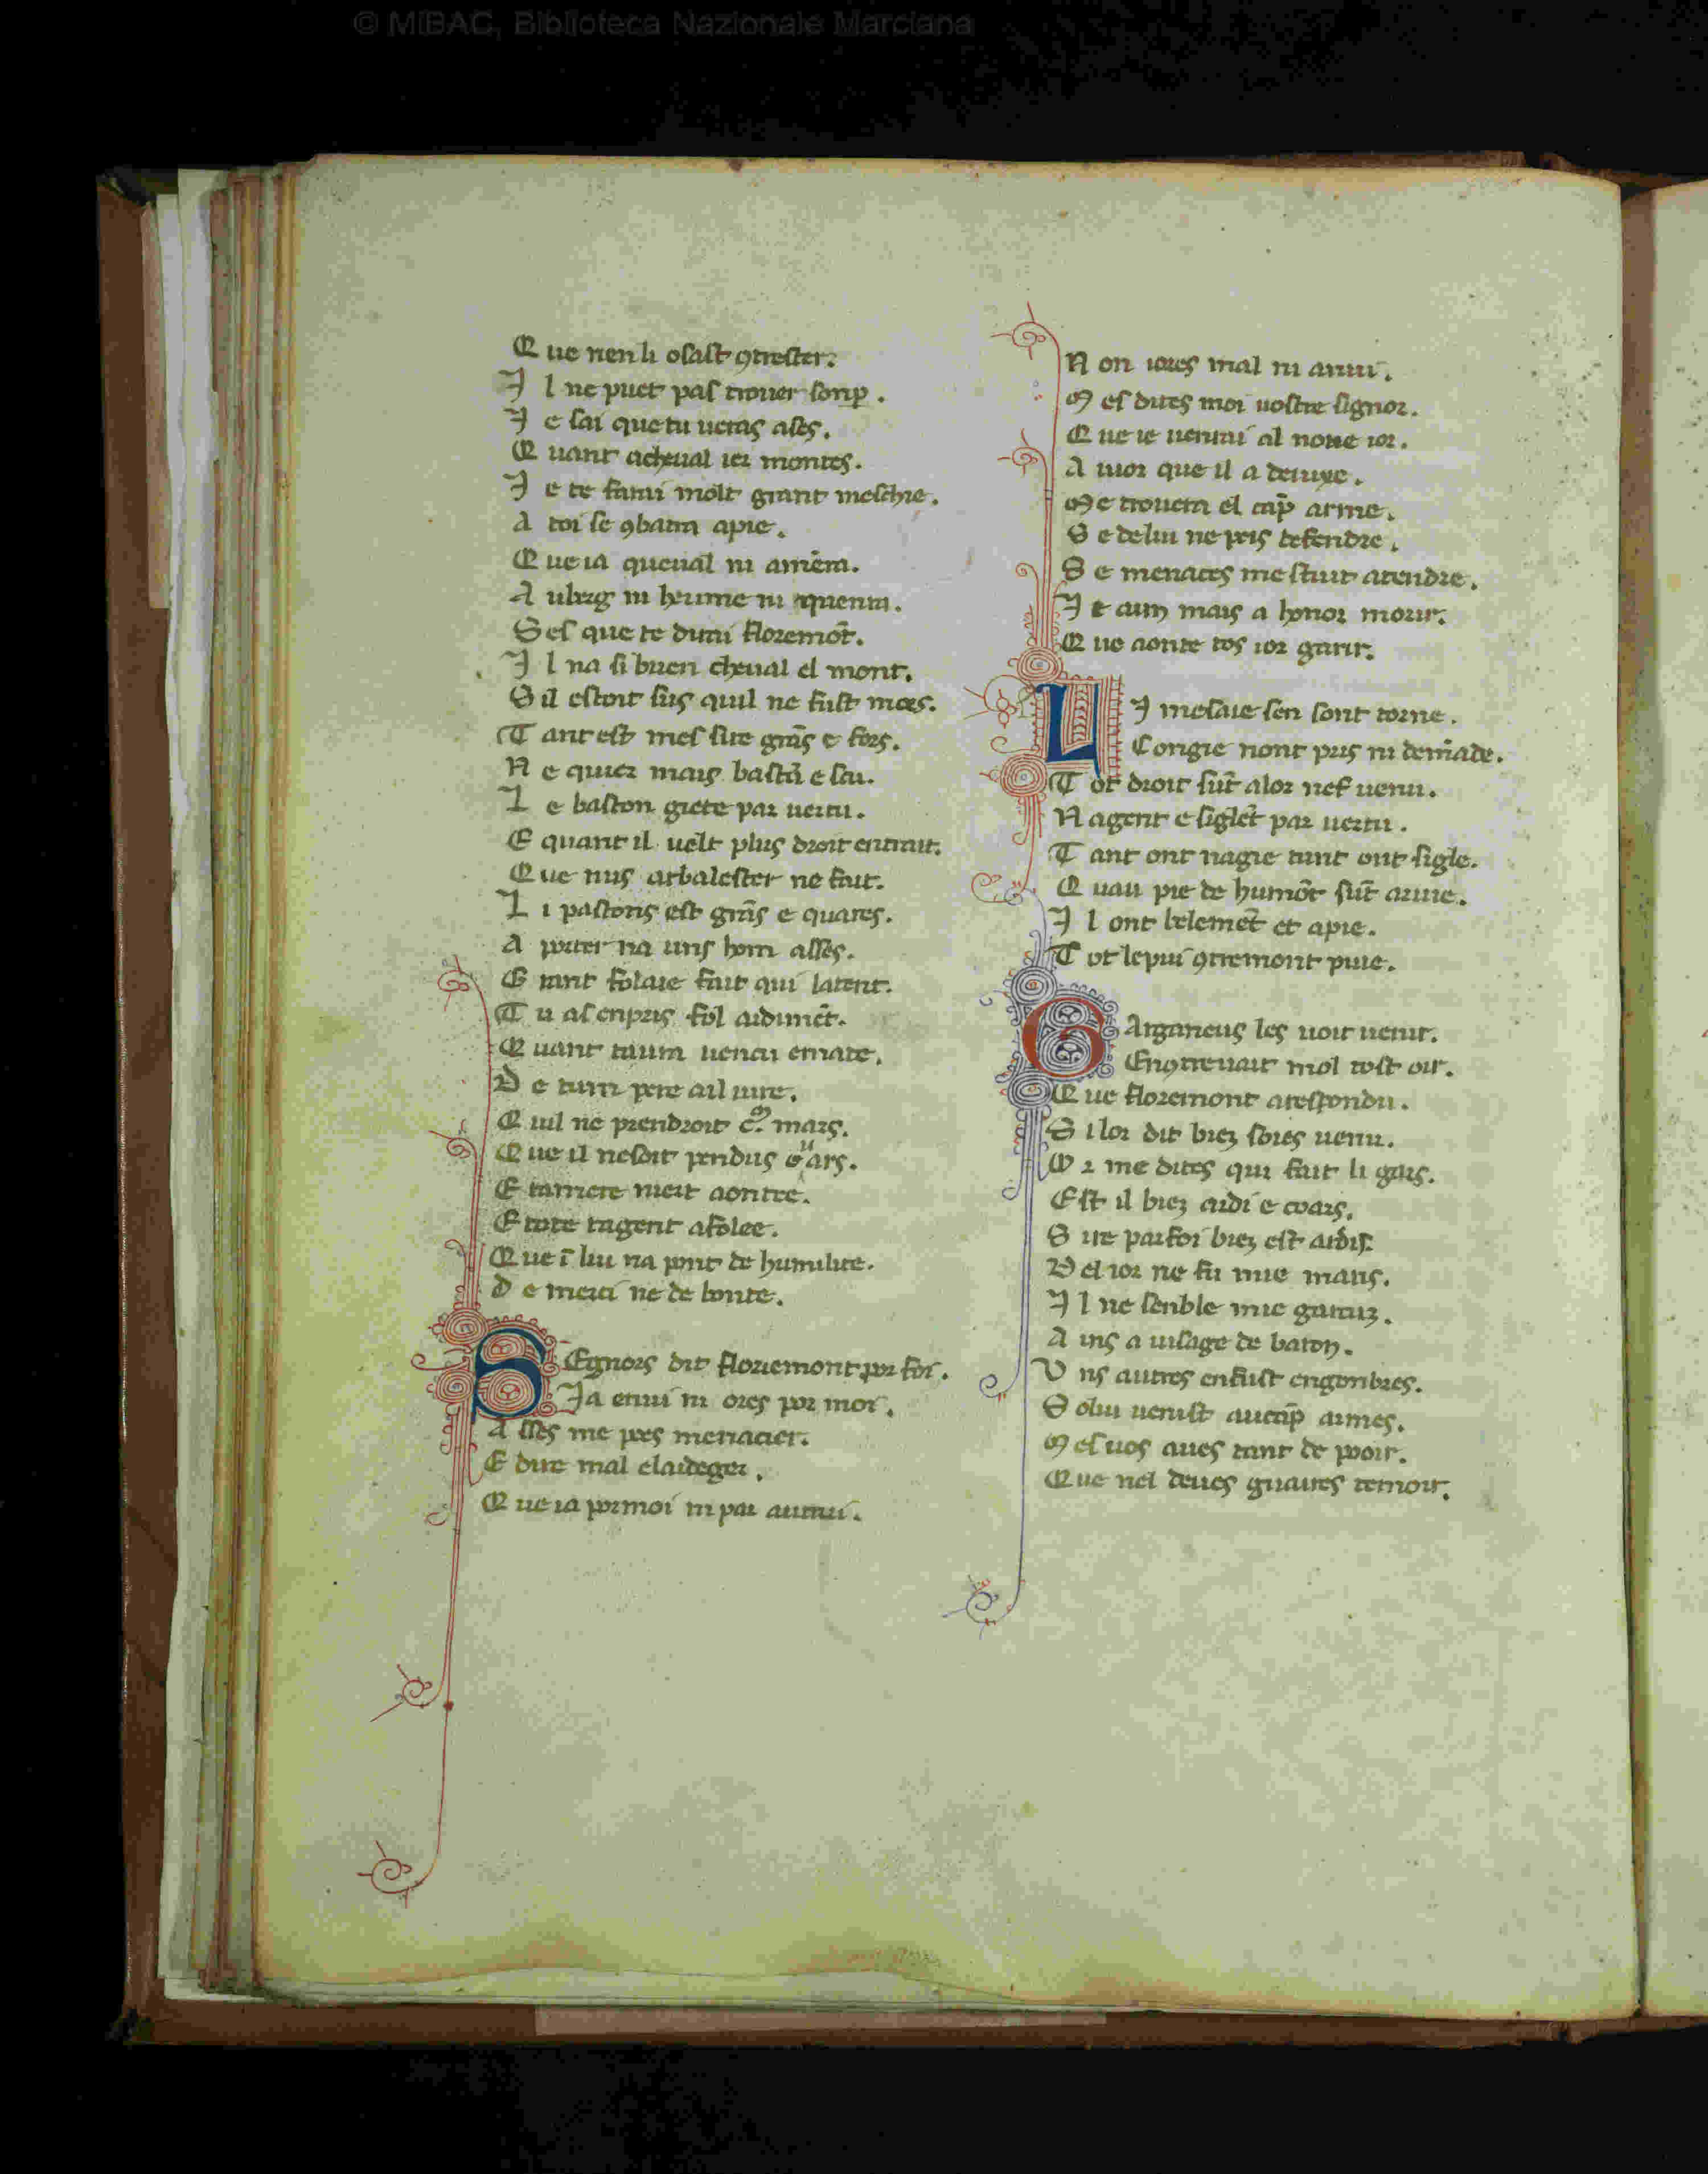 © MiBAC, Biblioteca Nazionale Marciana
Q ue nen li osast ꝯtrester.
I l ne puet pas trouer son ꝑ.
I e sai que tu ueras ases.
Q uant a cheual ier montes.
I e te farai molt grant meschie.
A toi se ꝯbatra a pie.
Q ue ia queual ni amēra.
A uberg ni heume ni quenra.
S es que te dirai floremōt.
I l na si buen cheual el mont.
S il estoit sus quil ne fust mors.
T ant est mes sire grās e fors.
N e quier mais bastō e scu.
L e baston giete par uertu.
E quant il uelt plus droit entrait.
Q ue nus arbalester ne fait.
L i pastons est grās e quares.
A porter na uns hom asses.
G rant folaie fait qui latent.
T u as enpris fol ardimēt.
Q uant
D e tum pere
Q uil ne prendroit c. mars.
Q ue il ne soit pendus o ars.
E ta mere mort a ontee.
E tote ta gent afolee.
Q ue ī lui na point de humilite.
D e merci ne de bonte.
S Egnors dit floriemont por foi.
Ia enui ni ores por moi.
A sses me poes menacier.
E dire mal e laideger.
Q ue ia por moi ni par autrui.
N on iores mal ni anui.
M es dites moi uostre signor.
Q ue ie uenrai al noue ior.
A iuor que il a deuise.
M e trouera el cāp arme.
S e de lui ne puis defendre.
S e menaces mestuit atendre.
I e aim mais a honor morir.
Q ue a onte tos ior garir.
L I mesaie sen sont torne.
Congie nont pris ni demāde.
T ot droit sūt a lor nef uenu.
N agent e siglēt par uertu.
T ant ont nagie tant ont sigle.
Q uau pie de humōt sūt ariue.
I l ont belemēt et a pie.
T ot le pui ꝯtremont puie.
G Arganeus les uoit uenir.
Enꝯtre uait mol tost oir.
Q ue floremont a respondu.
S i lor dit biez soies uenu.
O r me dites qui fait li gars.
Est il biez ardi e coars.
S ire par foi biez est ardis.
D el ior ne fu mie maris.
I l ne senble mie garcuz.
A ins a uisage de baron.
U ns autres en fust engonbres.
S o lui uenist au cāp armes.
M es uos aues tant de pooir.
Q ue nel deues gnaires temoir.